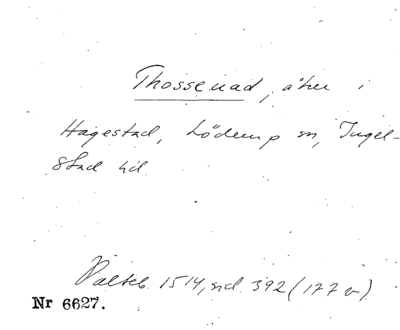 Thossenad, åker i
Hagestad, Löderup sn, Ingel-
stad hd
Palteb. 1514, sid. 392 (177 v).
Nr 6627.